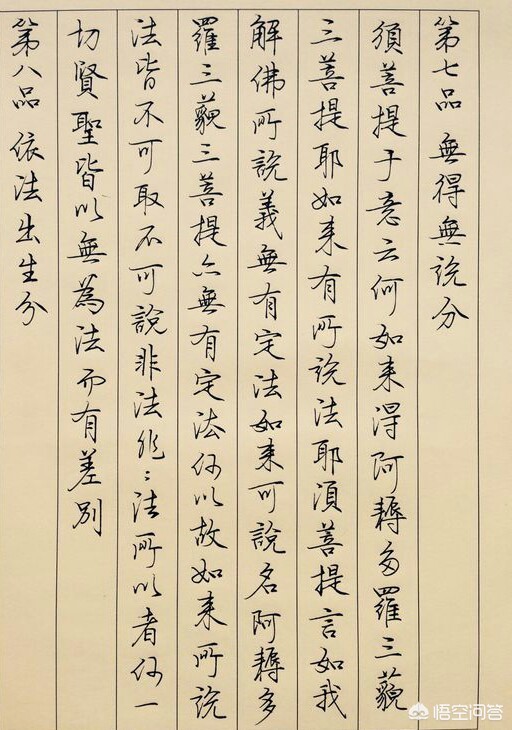 第七品 無得無說分
須菩提于意云何如来得阿耨多羅三藐
三菩提耶如来有所說法耶須菩提言如我
解佛所說義無有定法如来可說名阿耨多
羅三藐三菩提亦無有定法何以故如来所說
法皆不可取不可說非法非〻法所以者何一
切賢聖皆以無為法而有差別
第八品 依法出生分
悟空问答